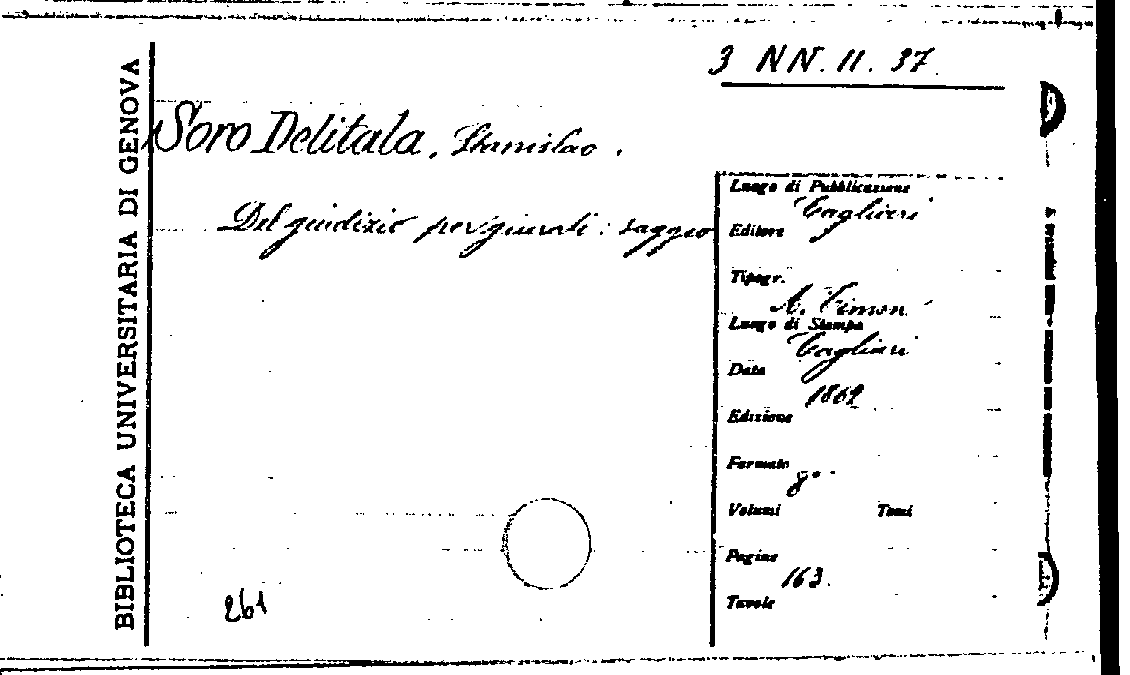 BIBLIOTECA UNIVERSITARIA DI GENOVA
3 NN. II. 37.
Soro Delitala, Stanislao.
Del giudizio per giurati: saggio
Luogo di Pubblicazione
Cagliari
Editore
Tipogr.
A. Timon
Luogo di Stampa
Cagliari
Data
1862
Edizione
Formato
8°
Volumi Tomi
Pagine
163.
Tavole
261